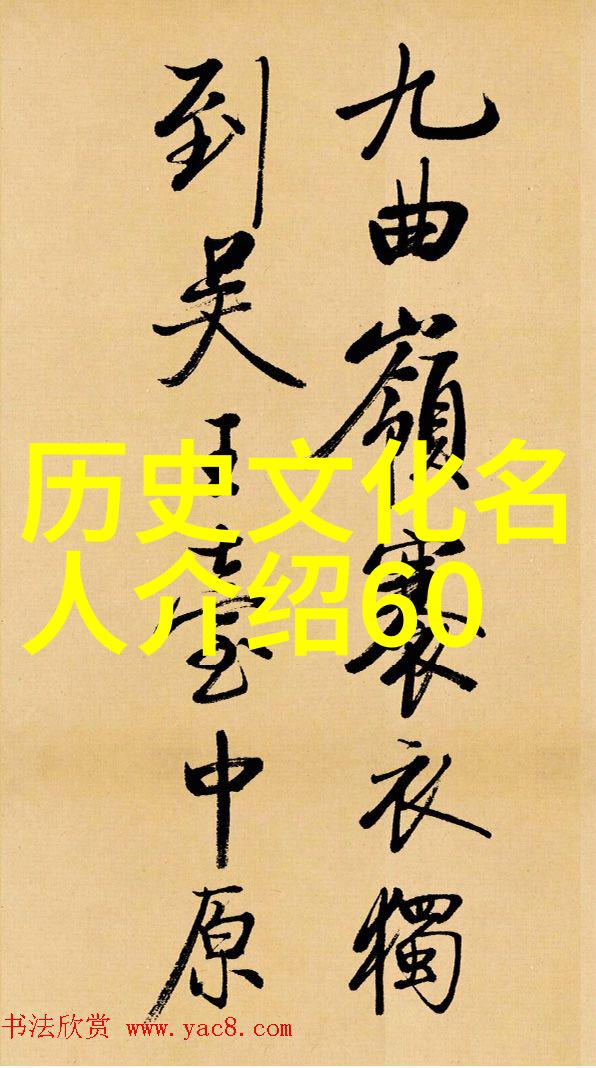 九曲嶺褰衣獨
到吴王臺中原
历史文化名
人介绍60
书法欣赏 www.yac8.com